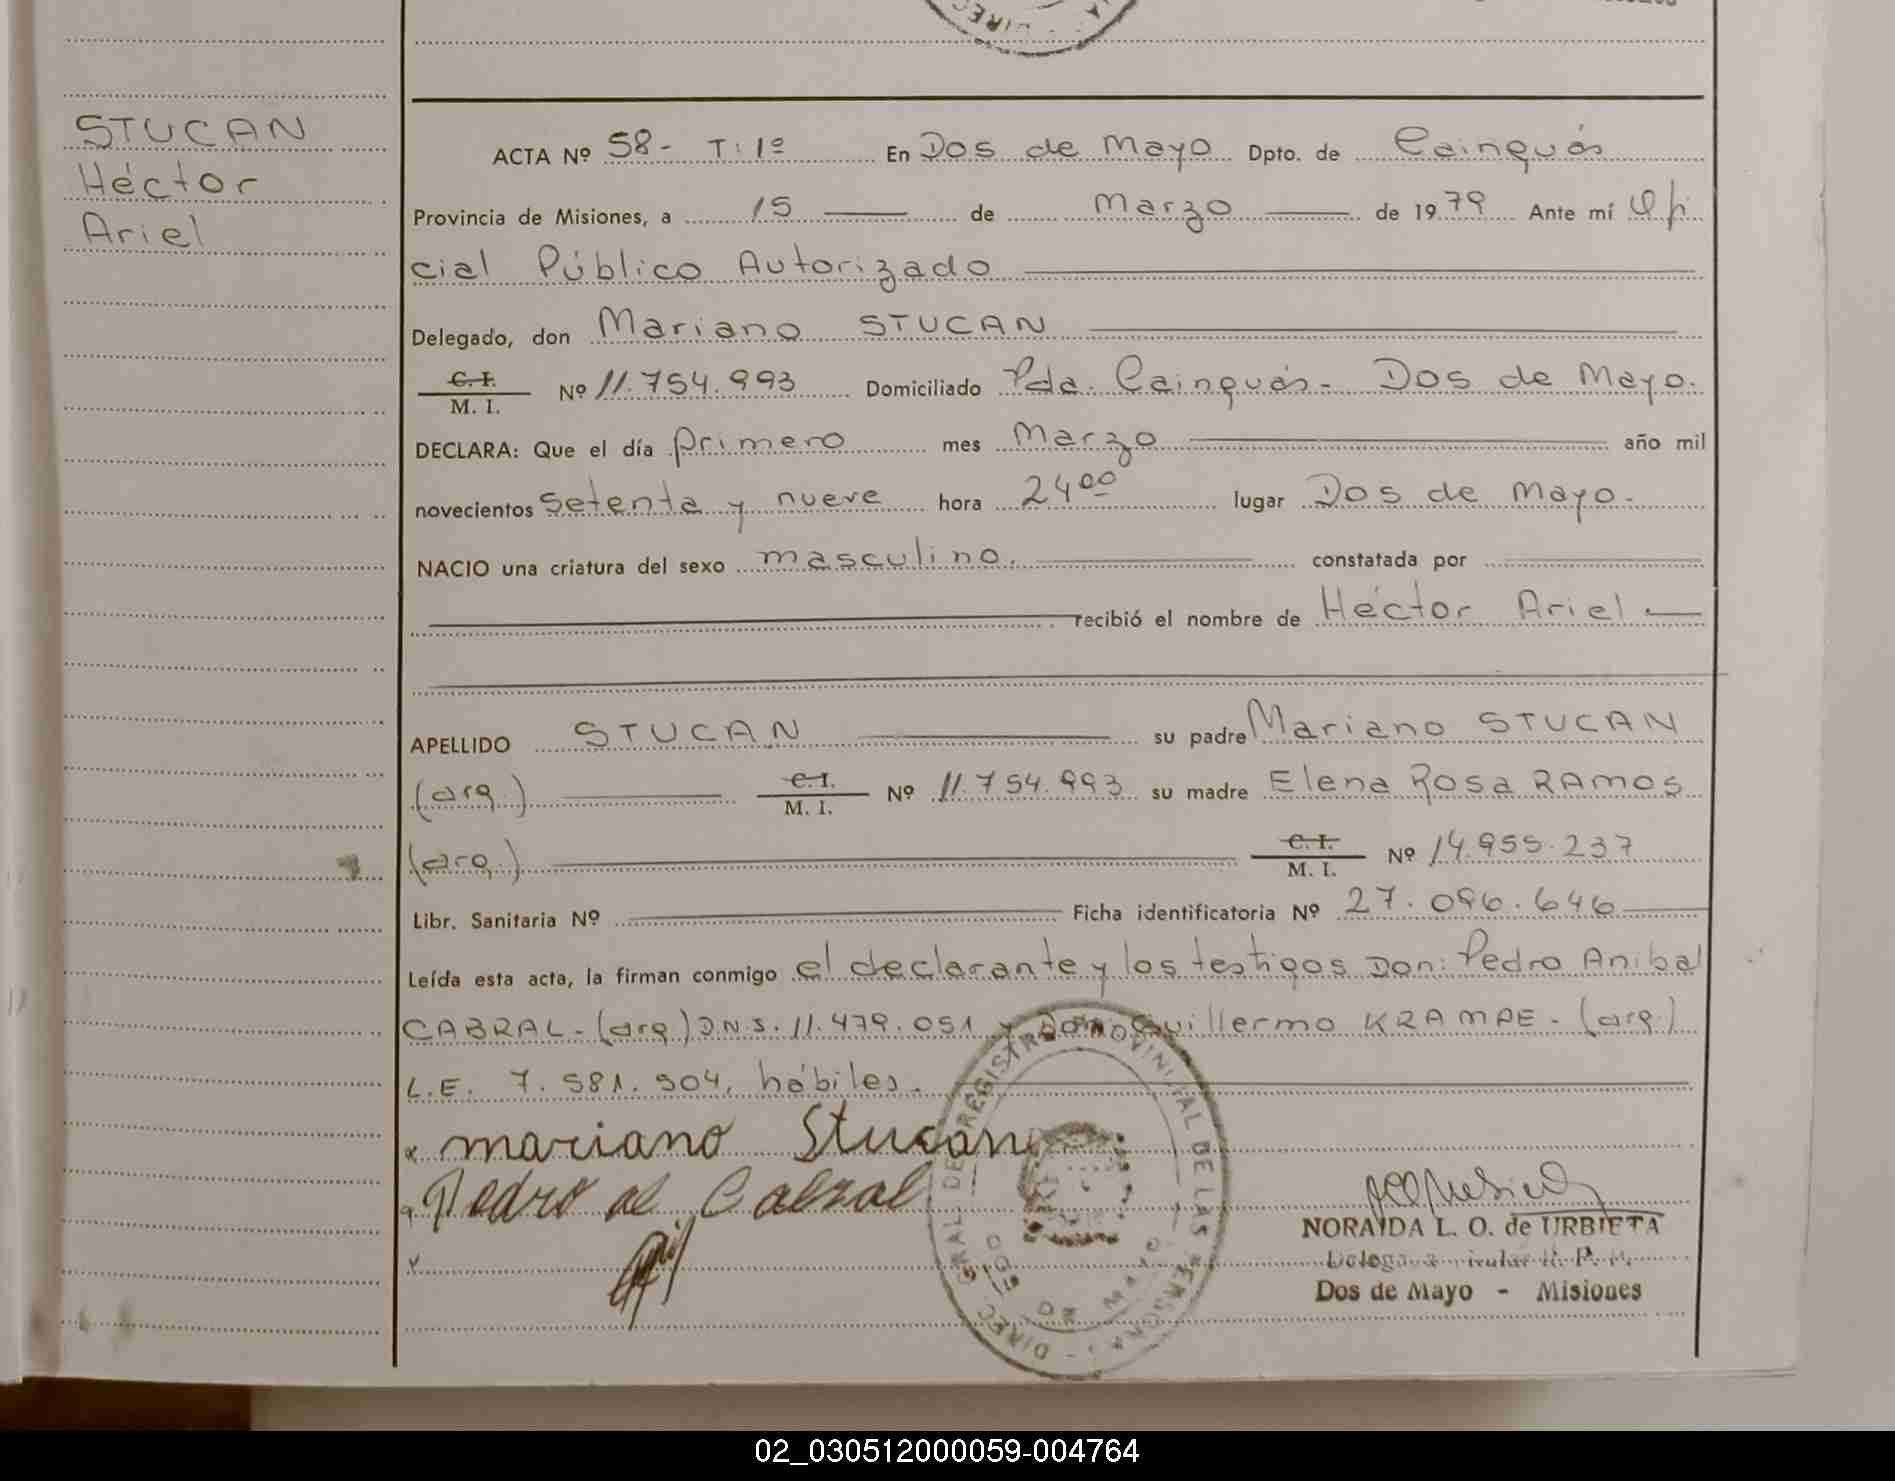 STUCAN
Héctor
Ariel
ACTA Nº 58- T: 1º En Dos de Mayo Dpto. de Cainguás
Provincia de Misiones, a 15 de Marzo de 1979 Ante mí Ofi
cial Público Autorizado
Delegado, don Mariano STUCAN
C. I. / M. I. Nº 11.754.993 Domiciliado Pda. Cainguás - Dos de Mayo.
DECLARA: Que el día primero mes Marzo año mil
novecientos setenta y nueve hora 24 00 lugar Dos de Mayo.
NACIO una criatura del sexo masculino. constatada por
recibió el nombre de Héctor Ariel
APELLIDO STUCAN su padre Mariano STUCAN
(arg.) C. I. / M. I. Nº 11.754.993 su madre Elena Rosa RAMOS
(arg.) C. I. / M. I. Nº 14.955.237
Libr. Sanitaria Nº Ficha identificatoria Nº 27.096.646
Leída esta acta, la firman conmigo el declarante y los testigos Don: Pedro Anibal
CABRAL - (arg.) D.N.I. 11.479.051 y Don Guillermo KRAMPE - (arg.)
L.E. 7.581.904, hábiles.
mariano Stucan
Pedro A. Cabral
NORAIDA L. O. de URBIETA
Dos de Mayo - Misiones
DIREC. GRAL. DEL REGISTRO PROVINCIAL DE LAS PERSONAS
02_030512000059-004764